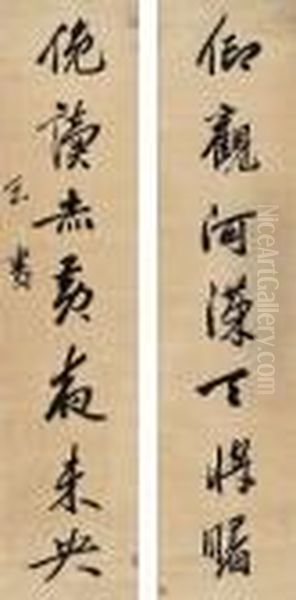 仰觀河漢天將曙
俛讀赤夜未央
NiceArtGallery.com